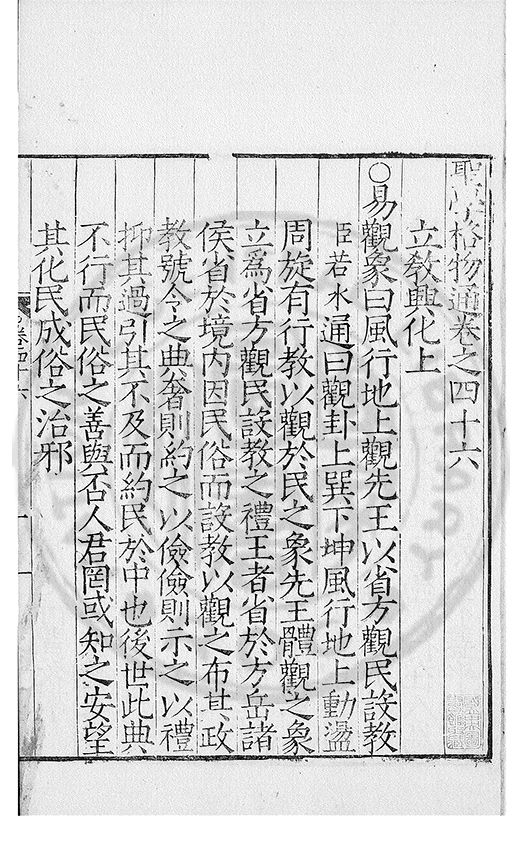 聖學格物通卷之四十六
立敎興化上
○易觀象曰風行地上觀先王以省方觀民設教
臣若水通曰觀卦上巽下坤風行地上動盪
周旋有行教以觀於民之象先王體觀之象
立爲省方觀民設教之禮王者省於方岳諸
侯省於境内因民俗而設教以觀之布其政
教號令之典奢則約之以儉儉則示之以禮
抑其過引其不及而約民於中也後世此典
不行而民俗之善與否人君罔或知之安望
其化民成俗之治邪
卷四十六
一